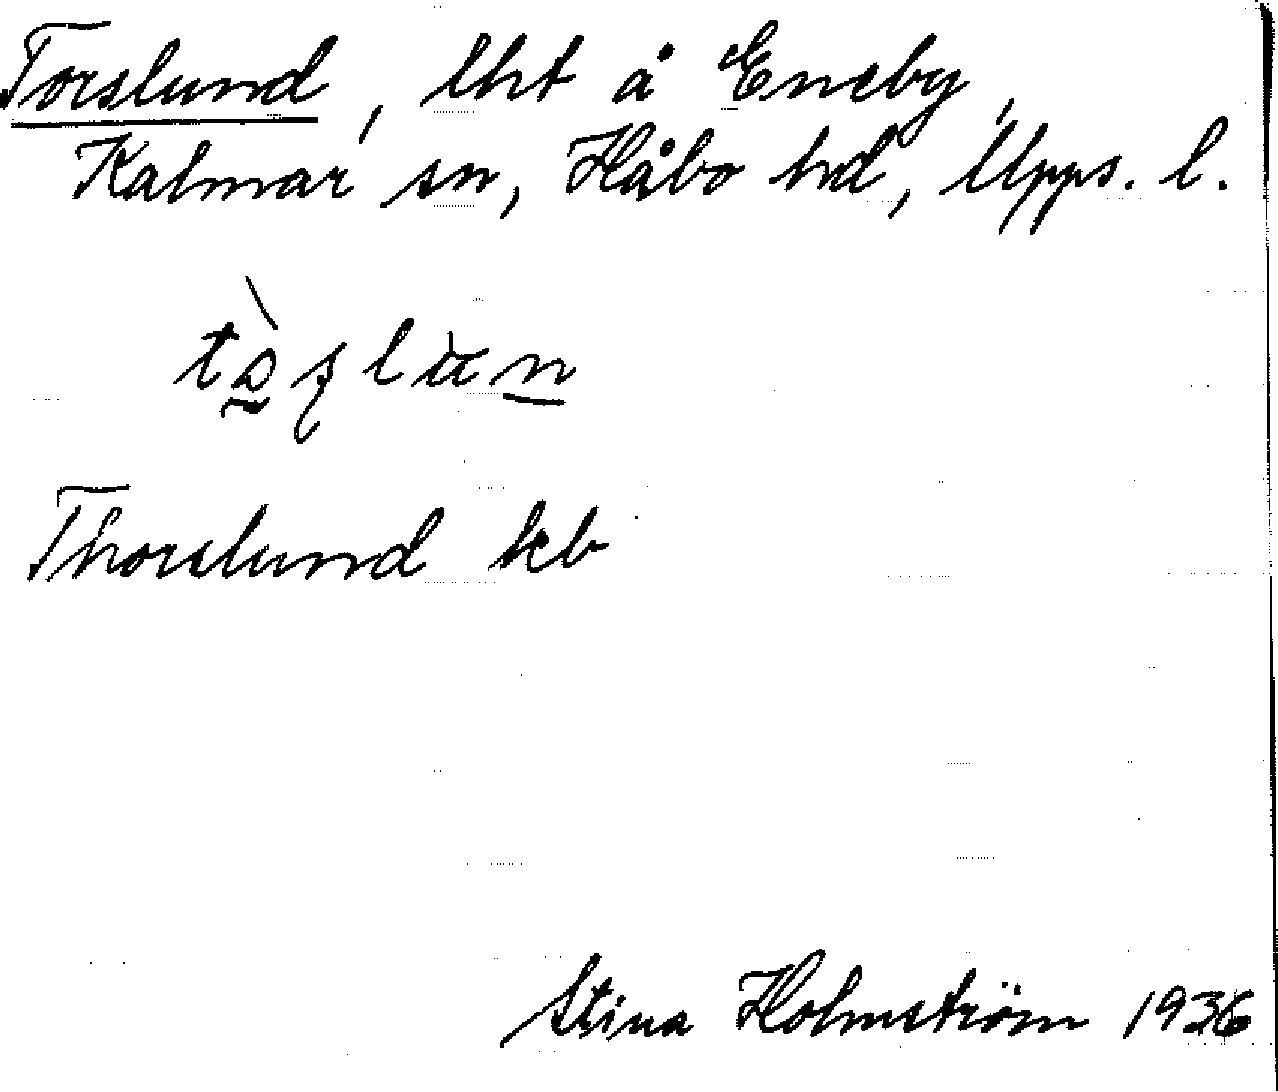 Torslund, lht å Eneby,
Kalmar sn, Håbo hd, Upps. l.
Thorslund kb
Stina Holmström 1936